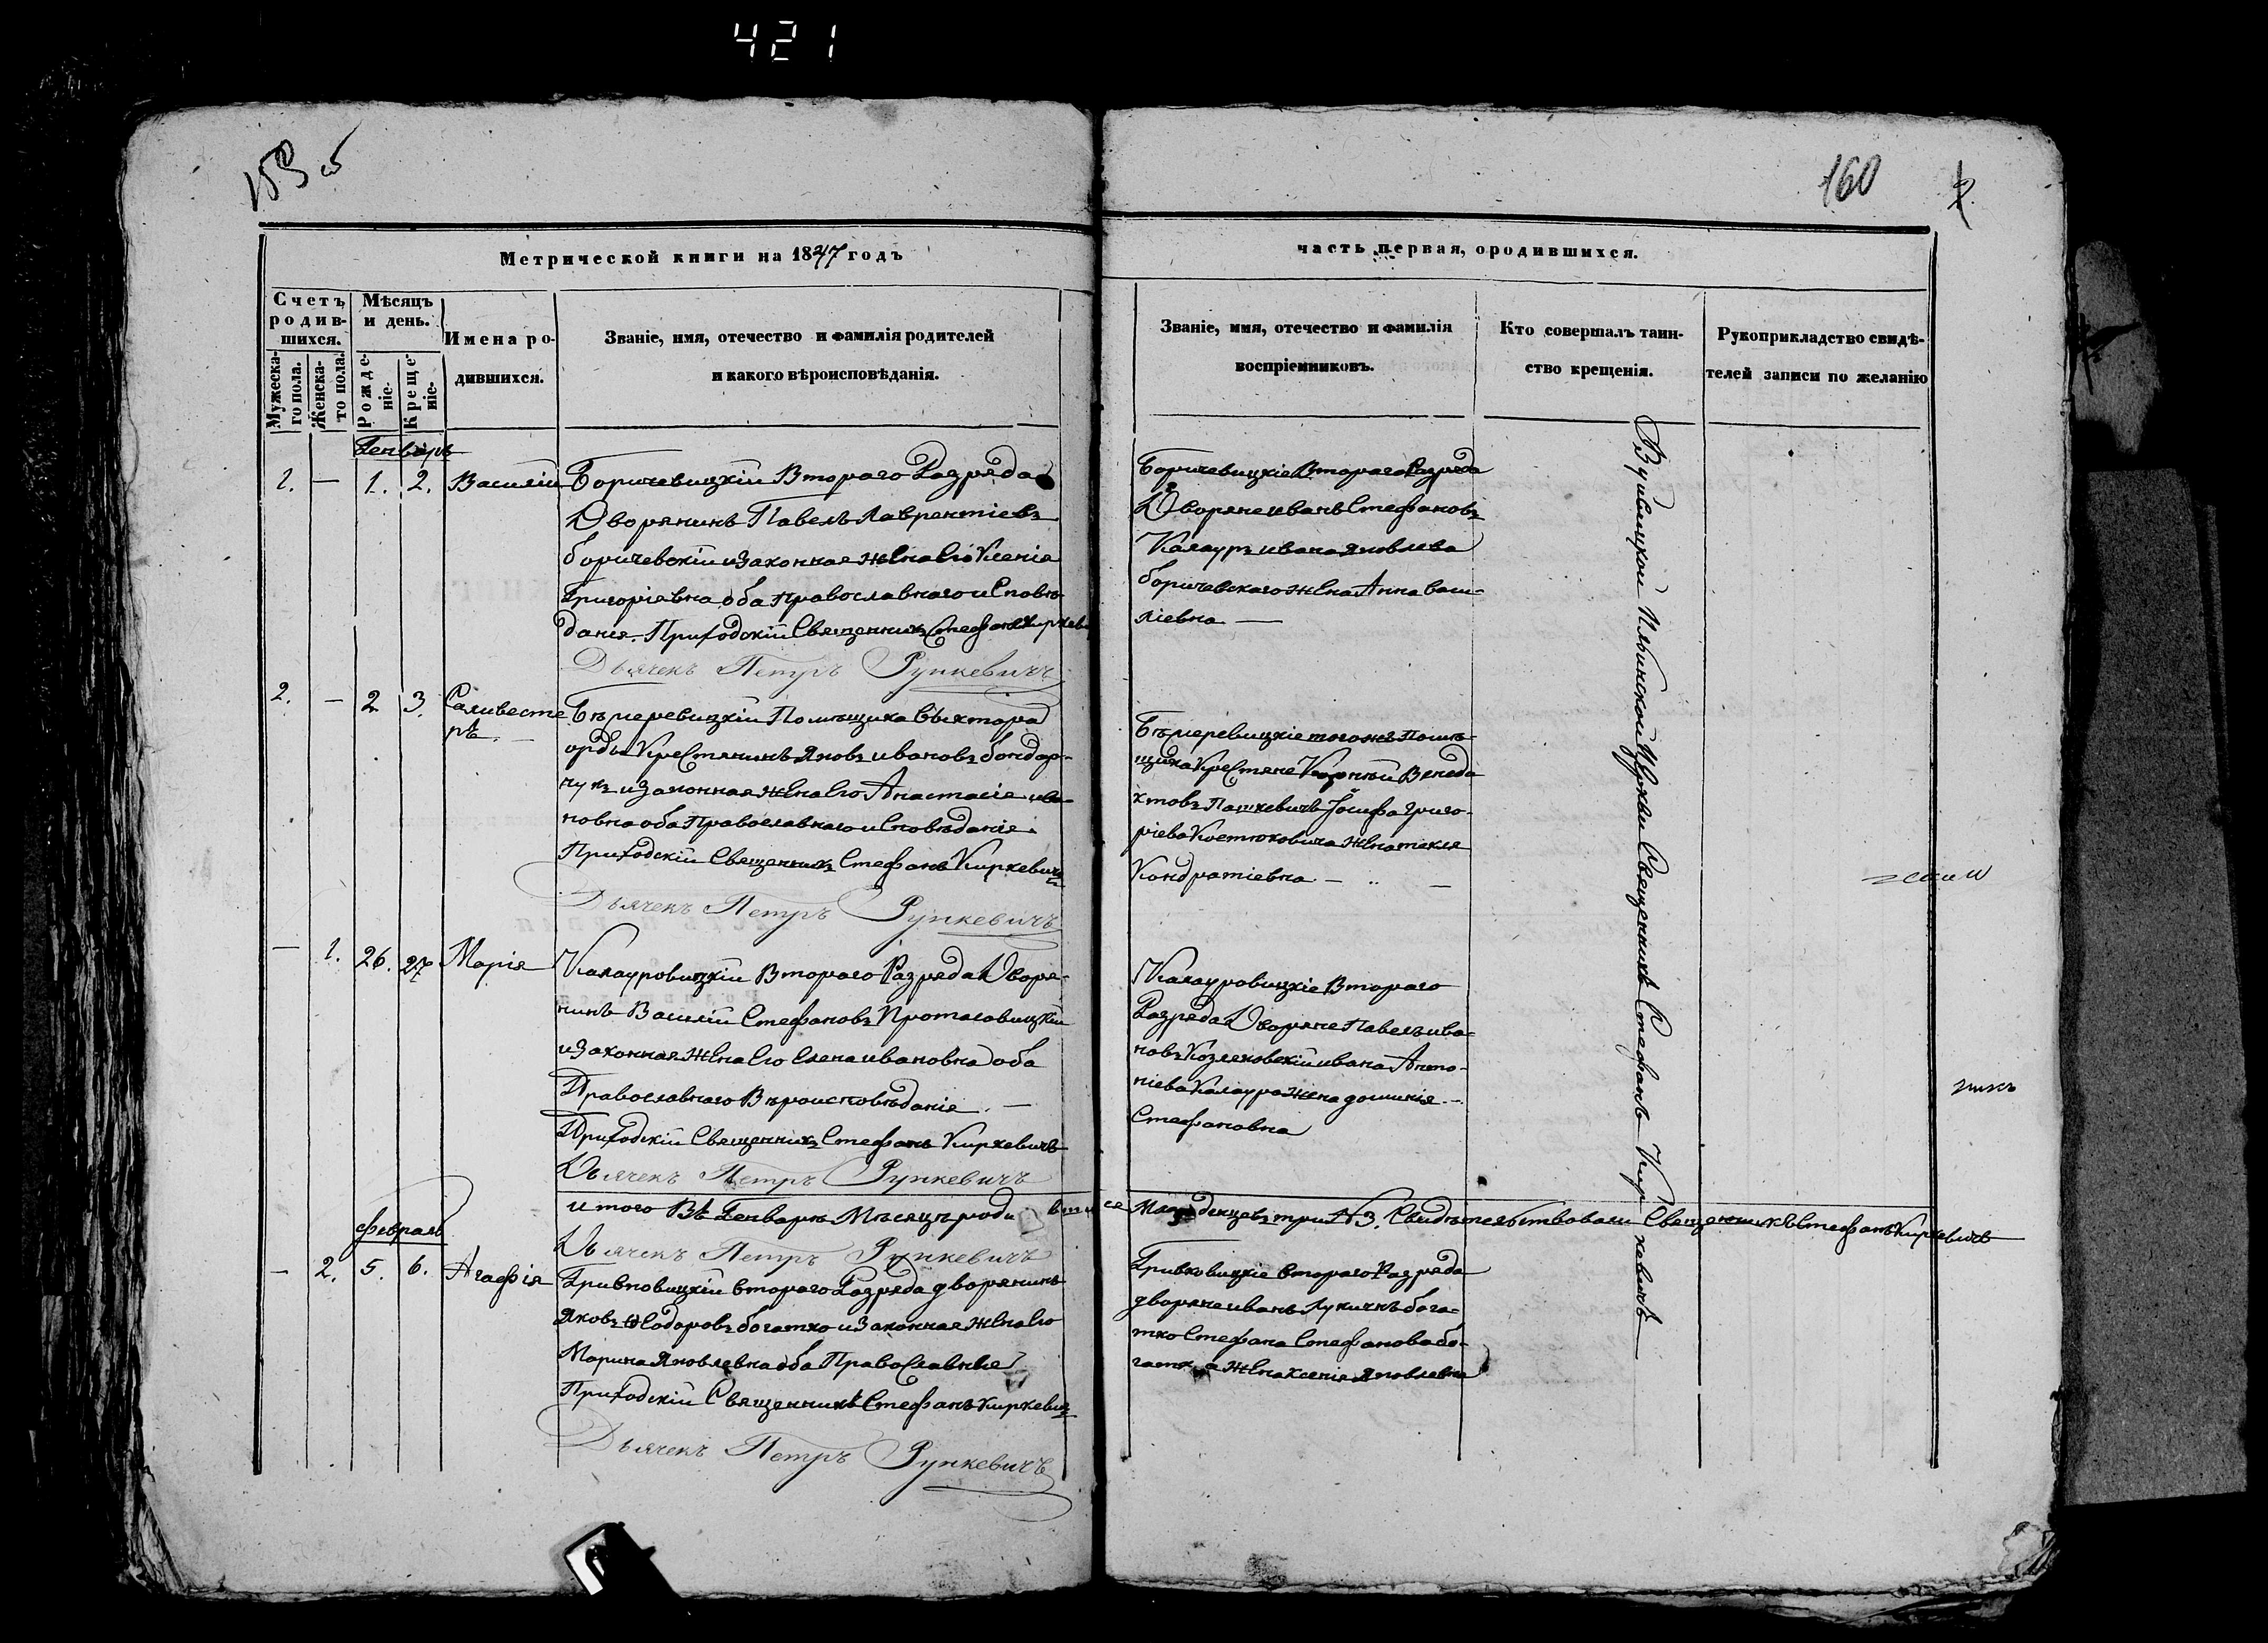 421
160
Метрической книги на 1847 годъ
часть первая, ородившихся.
Счетъ родив-
шихся.
Мужеска-
го пола.
Женска-
го пола.
Мѣсяцъ
и день.
Рожде-
ніе.
Креще-
ніе.
Имена ро-
дившихся.
Званіе, имя, отечество и фамилія родителей
и какого вѣроисповѣданія.
Званіе, имя, отечество и фамилія
воспріемниковъ.
Кто совершалъ таин-
ство крещенія.
Рукоприкладство свидѣ-
телей записи по желанію
Генварь
1. — 1. 2. Василій
Боричевицкій Втораго Разряда
Дворянинъ Павелъ Лаврентіевъ
боричевскій и Законная жена Его Ксенія
Григоріевна оба Православнаго исповѣ-
данія. Приходскій Священникъ Стефанъ Киркевичъ
Дьячекъ Петръ Рункевичъ
Боричевицкіе Втораго Разряда
Дворяне иванъ Стефановъ
Калауръ ивана Яковлева
боричевскаго жена Анна Васи-
ліевна —
2. — 2 3. Саливесте
ръ. —
орды Крестянинъ Яковъ ивановъ бондар-
чукъ и Законная жена Его Анастасія ива-
новна оба Православнаго исповѣданія.
Приходскій Священникъ Стефанъ Киркевичъ
Дьячекъ Петръ Рункевичъ
тогожъ Помѣ-
щика Крестяне Корнѣй Венеди
ктовъ Пашкевичъ Іосифа Григо-
ріева Костюковича жена текля
Кондратіевна —
— 1. 26. 27 Марія
Калауровицкій Втораго Разряда Дворя-
нинъ Василій Стефановъ Протасовицкій
и Законная жена Его Елена ивановна оба
Православнаго Вѣроисповѣданія. —
Приходскій Священникъ Стефанъ Киркевичъ
Дьячекъ Петръ Рункевичъ
Калауровицкіе Втораго
Разряда Дворяне Павелъ ива-
новъ Козляковскій ивана Анто-
ніева Калаура жена домникія
Стефановна
итого Въ Генварѣ Мѣсяцѣ родившихся Младенцевъ три № 3. Свидѣтельствовали Священникъ Стефанъ Киркевичъ
Дьячекъ Петръ Рункевичъ
февраль
— 2. 5. 6. Агафія
Гривковицкій втораго Разряда дворянинъ
Яковъ Ѳеодоровъ богатко и Законная жена Его
Марина Яковлевна оба Православные
Приходскій Священникъ Стефанъ Киркевичъ
Дьячекъ Петръ Рункевичъ
Гривковицкіе втораго Разряда
дворяне иванъ Лукичъ бога-
тко Стефана Стефанова бо-
гатка жена Ксенія Яковлевна
Ильинской Церкви Священникъ Стефанъ Киркевичъ